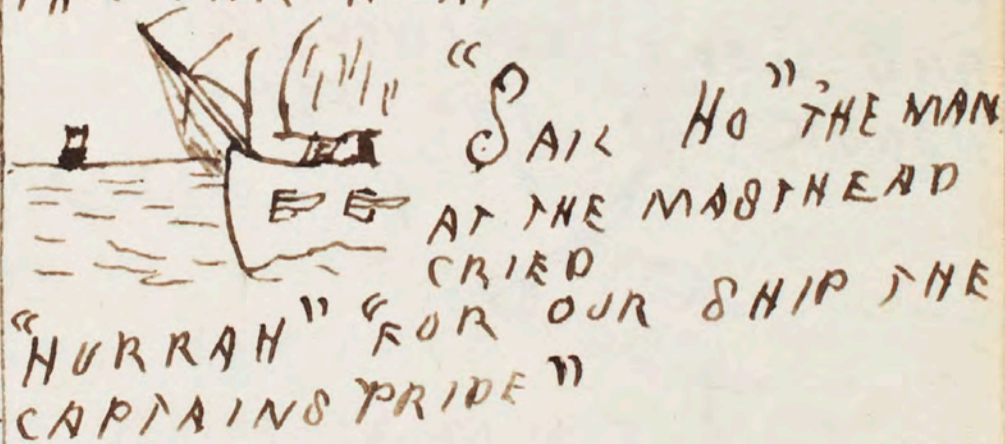 "SAIL HO" THE MAN
AT THE MASTHEAD
CRIED
"HURRAH" "FOR OUR SHIP THE
CAPTAINS PRIDE"